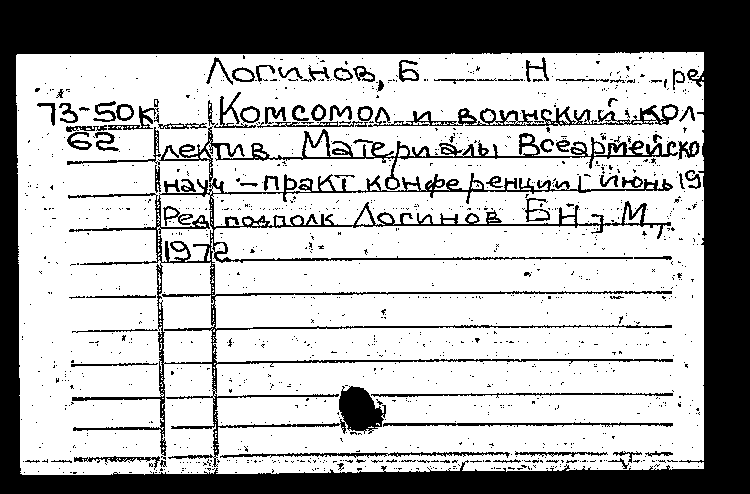 Логинов, Б Н , ред
73-50к Комсомол и воинский кол-
62 лектив Материалы Всеармейско
науч-практ конференции [июнь 19
Ред подполк Логинов БН] М,
1972